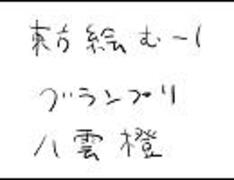 東方絵むー1
グランプリ
八雲橙